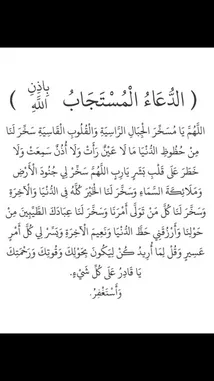 ( الدُّعَاءُ الْمُسْتَجَابُ بِإِذْنِ اللَّهِ )
اللَّهُمَّ يَا مُسَخِّرَ الْجِبَالِ الرَّاسِيَةِ وَالْقُلُوبِ الْقَاسِيَةِ سَخِّرْ لَنَا
مِنْ حُظُوظِ الدُّنْيَا مَا لَا عَيْنٌ رَأَتْ وَلَا أُذُنٌ سَمِعَتْ وَلَا
خَطَرَ عَلَى قَلْبِ بَشَرٍ يَارِبِ اللَّهُمَّ سَخِّرْ لِي جُنُودَ الْأَرْضِ
وَمَلَائِكَةَ السَّمَاءِ وَسَخِّرْ لَنَا الْخَيْرَ كُلَّهُ فِي الدُّنْيَا وَالْآخِرَةِ
وَسَخِّرْ لَنَا كُلَّ مَنْ تَوَلَّى أَمْرَنَا وَسَخِّرْ لَنَا عِبَادَكَ الطَّيِّبِينَ مِنْ
حَوْلِنَا وَأَرْزُقْنِي حَظَّ الدُّنْيَا وَنَعِيمَ الْآخِرَةِ وَيَسِّرْ لِي كُلَّ أَمْرٍ
عَسِيرٍ وَقُلْ لِمَا أُرِيدُ كُنْ لِيَكُونَ بِحَوْلِكَ وَقُوَّتِكَ وَرَحْمَتِكَ
يَا قَادِرُ عَلَى كُلِّ شَيْءٍ.
وَأَسْتَغْفِرُ.